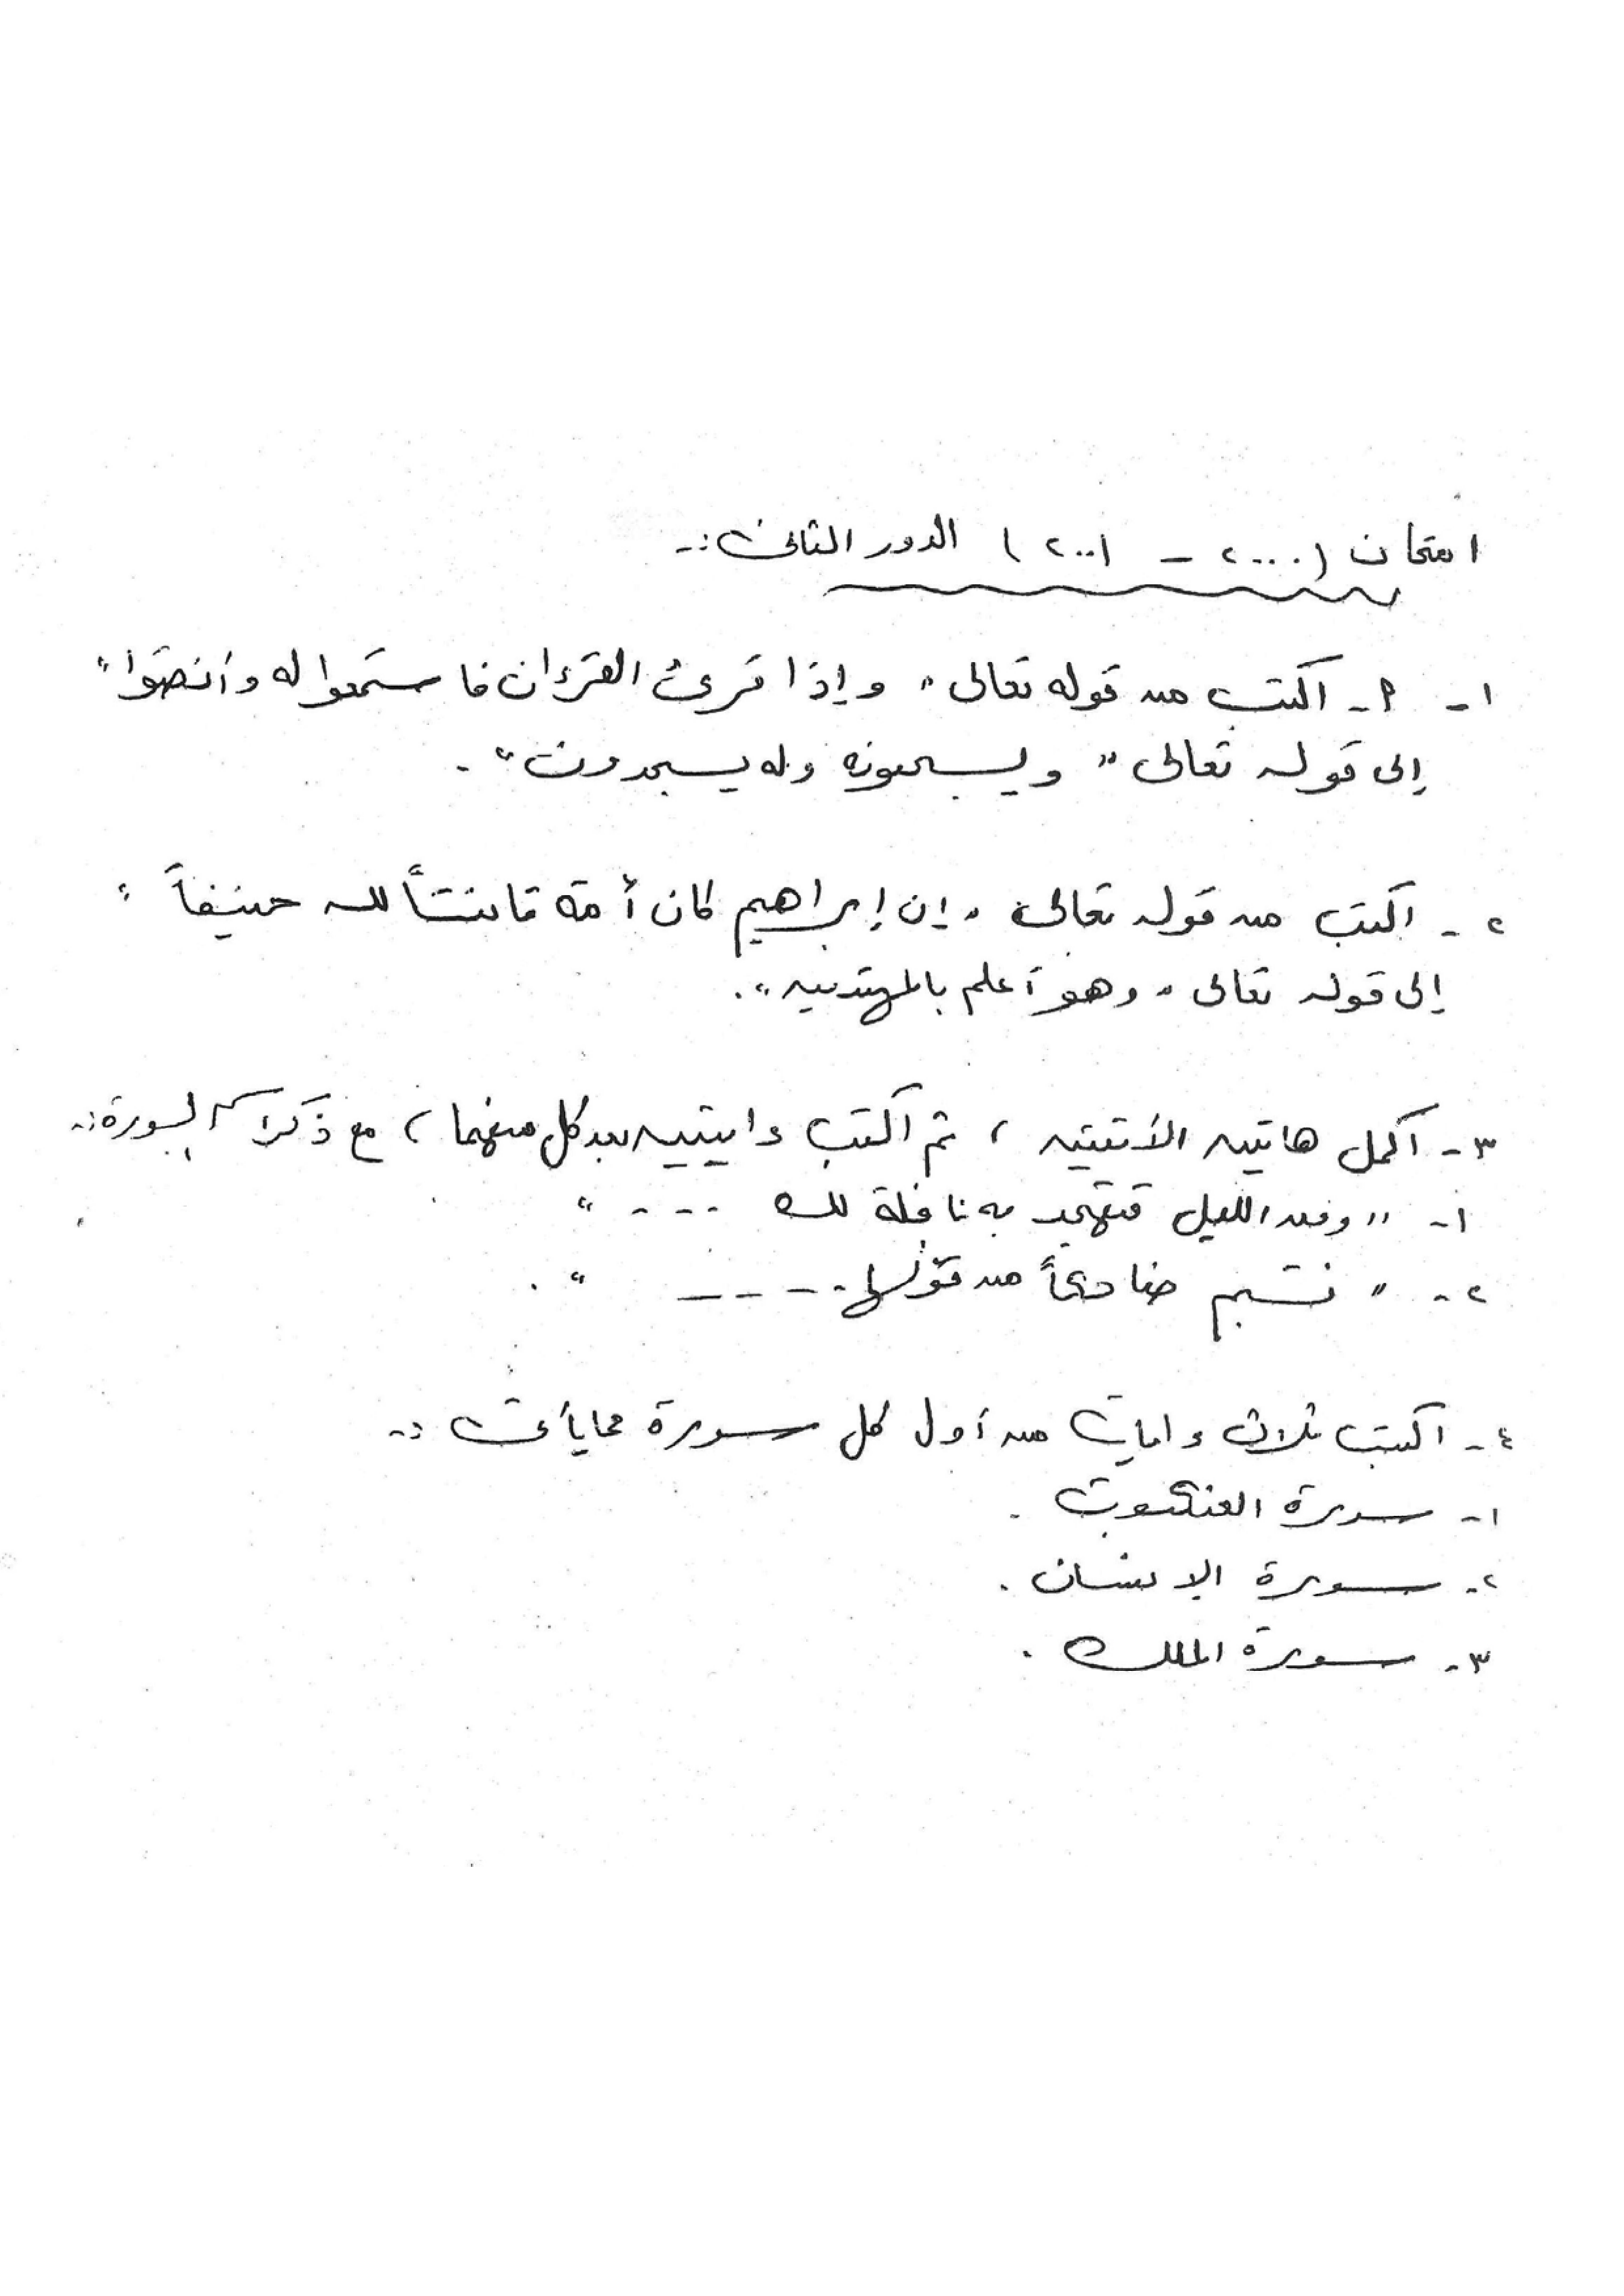 امتحان (٢٠٠٠ - ٢٠٠١) الدور الثانى :-
١- أ- اكتب من قوله تعالى " وإذا قرىء القرءان فاستمعوا له وأنصتوا "
إلى قوله تعالى " ويسبحونه وله يسجدون " .
٢- اكتب من قوله تعالى " إن إبراهيم كان أمة قانتاً لله حنيفاً "
إلى قوله تعالى " وهو أعلم بالمهتدين " .
٣- أكمل هاتين الآيتين ، ثم اكتب ءايتين بعد كل منهما ، مع ذكر اسم السورة :-
١- " ومن الليل فتهجد به نافلة لك ---- "
٢- " فتبسم ضاحكاً من قولها ----- " .
٤- اكتب ثلاث ءايات من أول كل سورة مما يأتى :-
١- سورة العنكبوت .
٢- سورة الإنسان .
٣- سورة الملك .